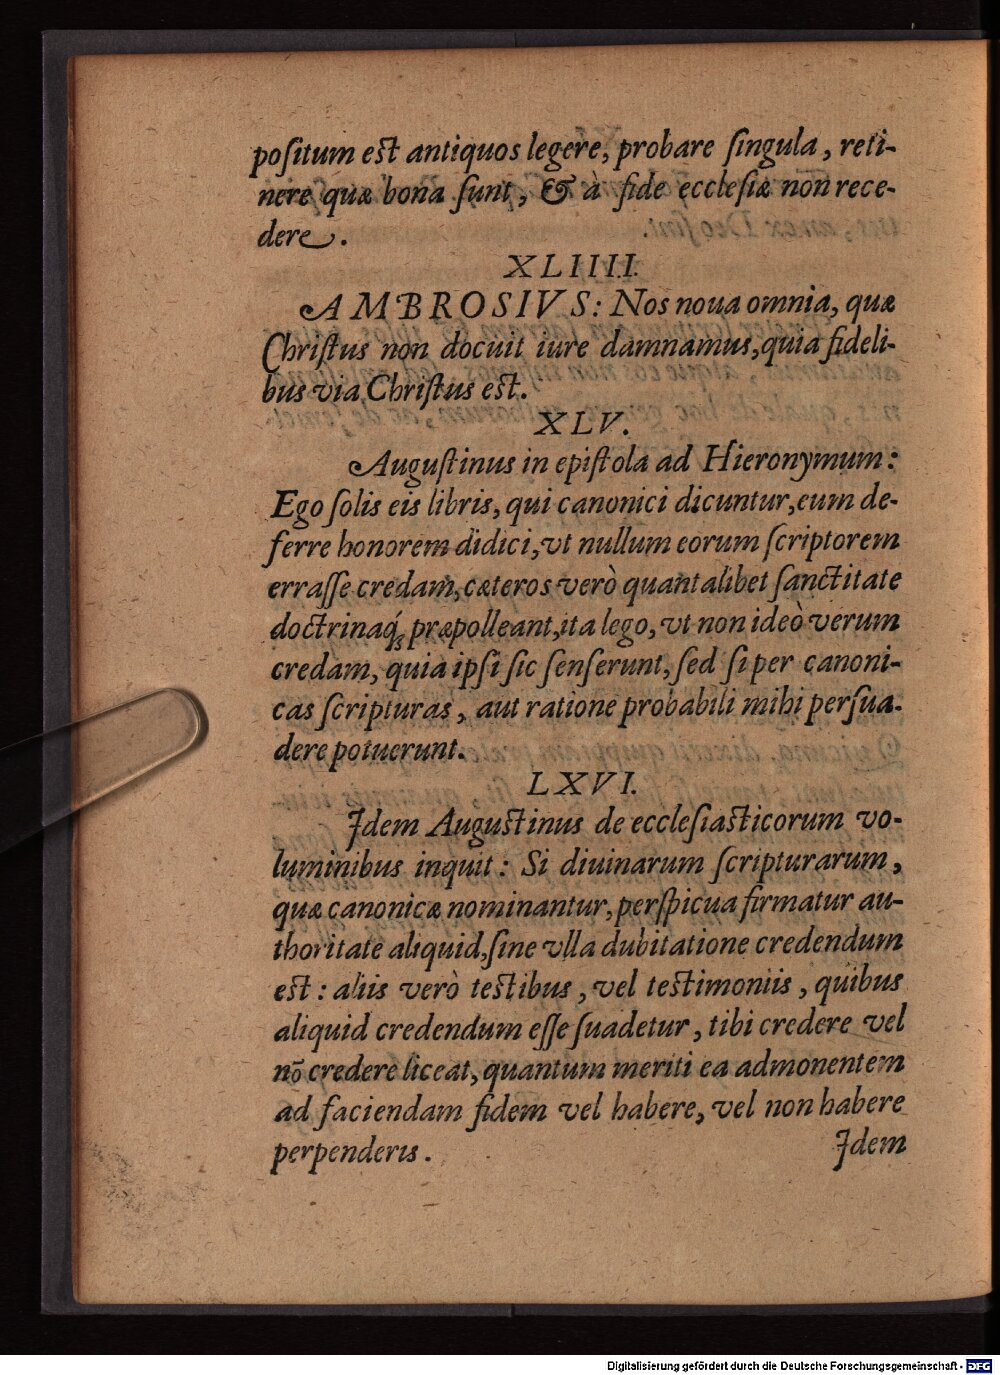 poſitum est antiquos legere, probare ſingula, reti-
nere quæ bona ſunt, & à fide eccleſiæ non rece-
dere.
XLIIII.
AMBROSIVS: Nos noua omnia, quæ
Chriſtus non docuit iure damnamus, quia fideli-
bus via Chriſtus est.
XLV.
Auguſtinus in epiſtola ad Hieronymum:
Ego ſolis eis libris, qui canonici dicuntur, eum de-
ferre honorem didici, vt nullum eorum ſcriptorem
erraſſe credam, cæteros verò quantalibet ſanctitate
doctrinaq́; præpolleant, ita lego, vt non ideò verum
credam, quia ipſi ſic ſenſerunt, ſed ſi per canoni-
cas ſcripturas, aut ratione probabili mihi perſua-
dere potuerunt.
LXVI.
Idem Augustinus de eccleſiasticorum vo-
luminibus inquit: Si diuinarum ſcripturarum,
quæ canonicæ nominantur, perſpicua firmatur au-
thoritate aliquid, ſine vlla dubitatione credendum
est: aliis verò testibus, vel testimoniis, quibus
aliquid credendum eſſe ſuadetur, tibi credere vel
nō credere liceat, quantum meriti ea admonentem
ad faciendam fidem vel habere, vel non habere
perpenderis.
Idem
Digitalisierung gefördert durch die Deutsche Forschungsgemeinschaft - DFG